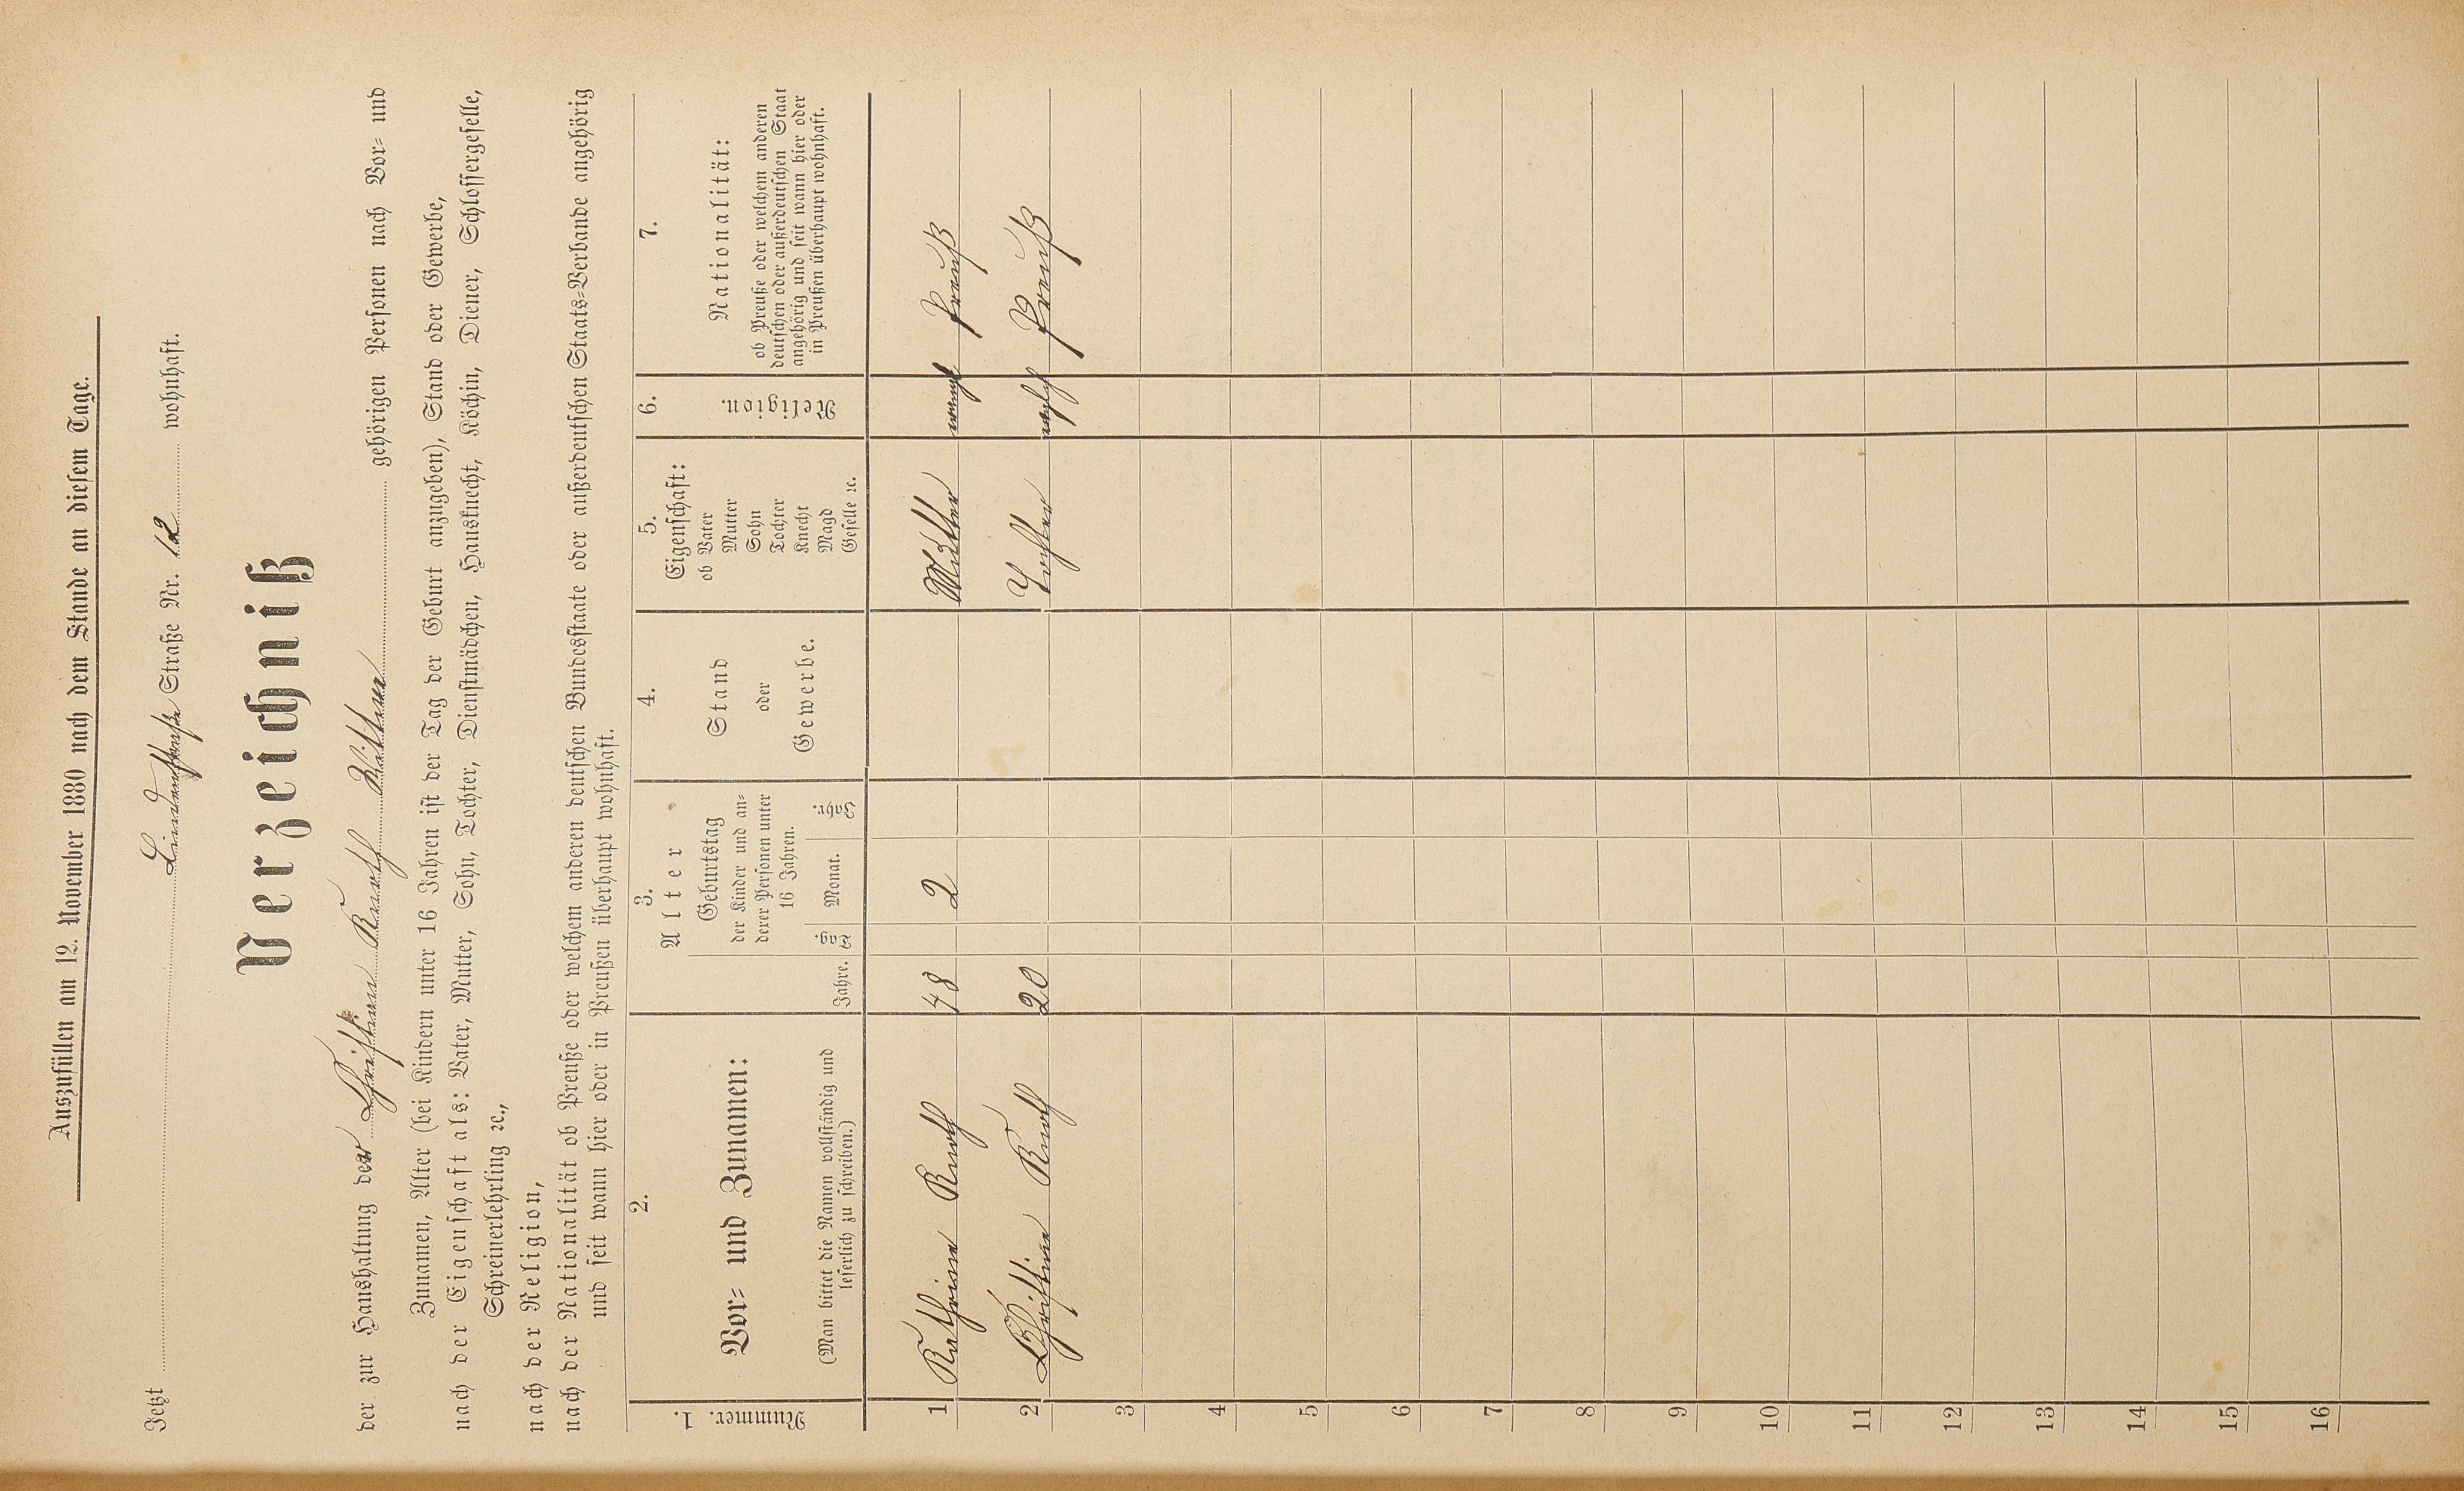 Auszufüllen am 12. November 1880 nach dem Stande an diesem Tage.
Jetzt Lindenstraße Straße Nr. 12 wohnhaft.
Verzeichniß
der zur Haushaltung der Christian Kurth Wittwe gehörigen Personen nach Vor- und
Zunamen, Alter (bei Kindern unter 16 Jahren ist der Tag der Geburt anzugeben), Stand oder Gewerbe,
nach der Eigenschaft als: Vater, Mutter, Sohn, Tochter, Dienstmädchen, Hausknecht, Köchin, Diener, Schlossergeselle,
Schreinerlehrling ꝛc.,
nach der Religion,
nach der Nationalität ob Preuße oder welchem anderen deutschen Bundesstaate oder außerdeutschen Staats-Verbande angehörig
und seit wann hier oder in Preußen überhaupt wohnhaft.
Nummer. 1.
2.
Vor- und Zunamen:
(Man bittet die Namen vollständig und
leserlich zu schreiben.)
3.
Alter
Jahre.
Geburtstag
der Kinder und an-
derer Personen unter
16 Jahren.
Tag.
Monat.
Jahr.
4.
Stand
oder
Gewerbe.
5.
Eigenschaft:
ob Vater
Mutter
Sohn
Tochter
Knecht
Magd
Geselle ꝛc.
6.
Religion.
7.
Nationalität:
ob Preuße oder welchem anderen
deutschen oder außerdeutschen Staat
angehörig und seit wann hier oder
in Preußen überhaupt wohnhaft.
1 Kathrine Kurth 48 2 Mutter Preuß
2 Christine Kurth 20 Tochter Preuß
3
4
5
6
7
8
9
10
11
12
13
14
15
16